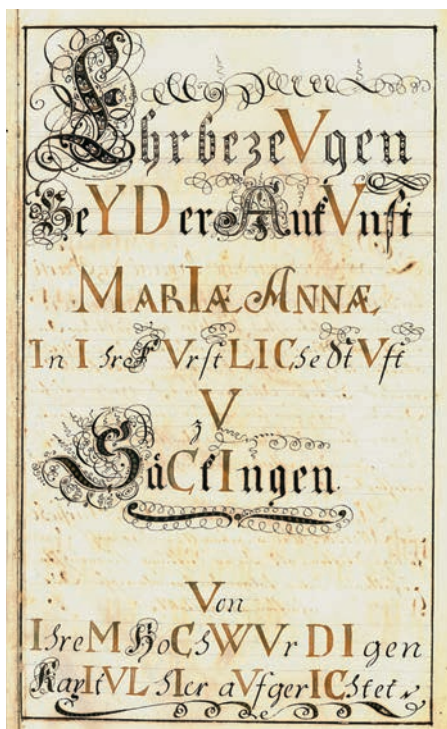 EhrbezeVgen
BeYDer AnkVnft
MARIÆ ANNÆ
In Ihr FVrstLIChe StVft
zV
SäCkIngen.
Von
IhreM HoChWVrDIgen
KapItVL hIer aVfgerIChtet